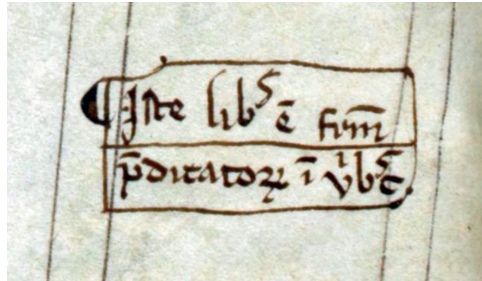 ¶ Iste libꝰ ē frm̄
p̄dicatoꝝ ī v̍bꝰe